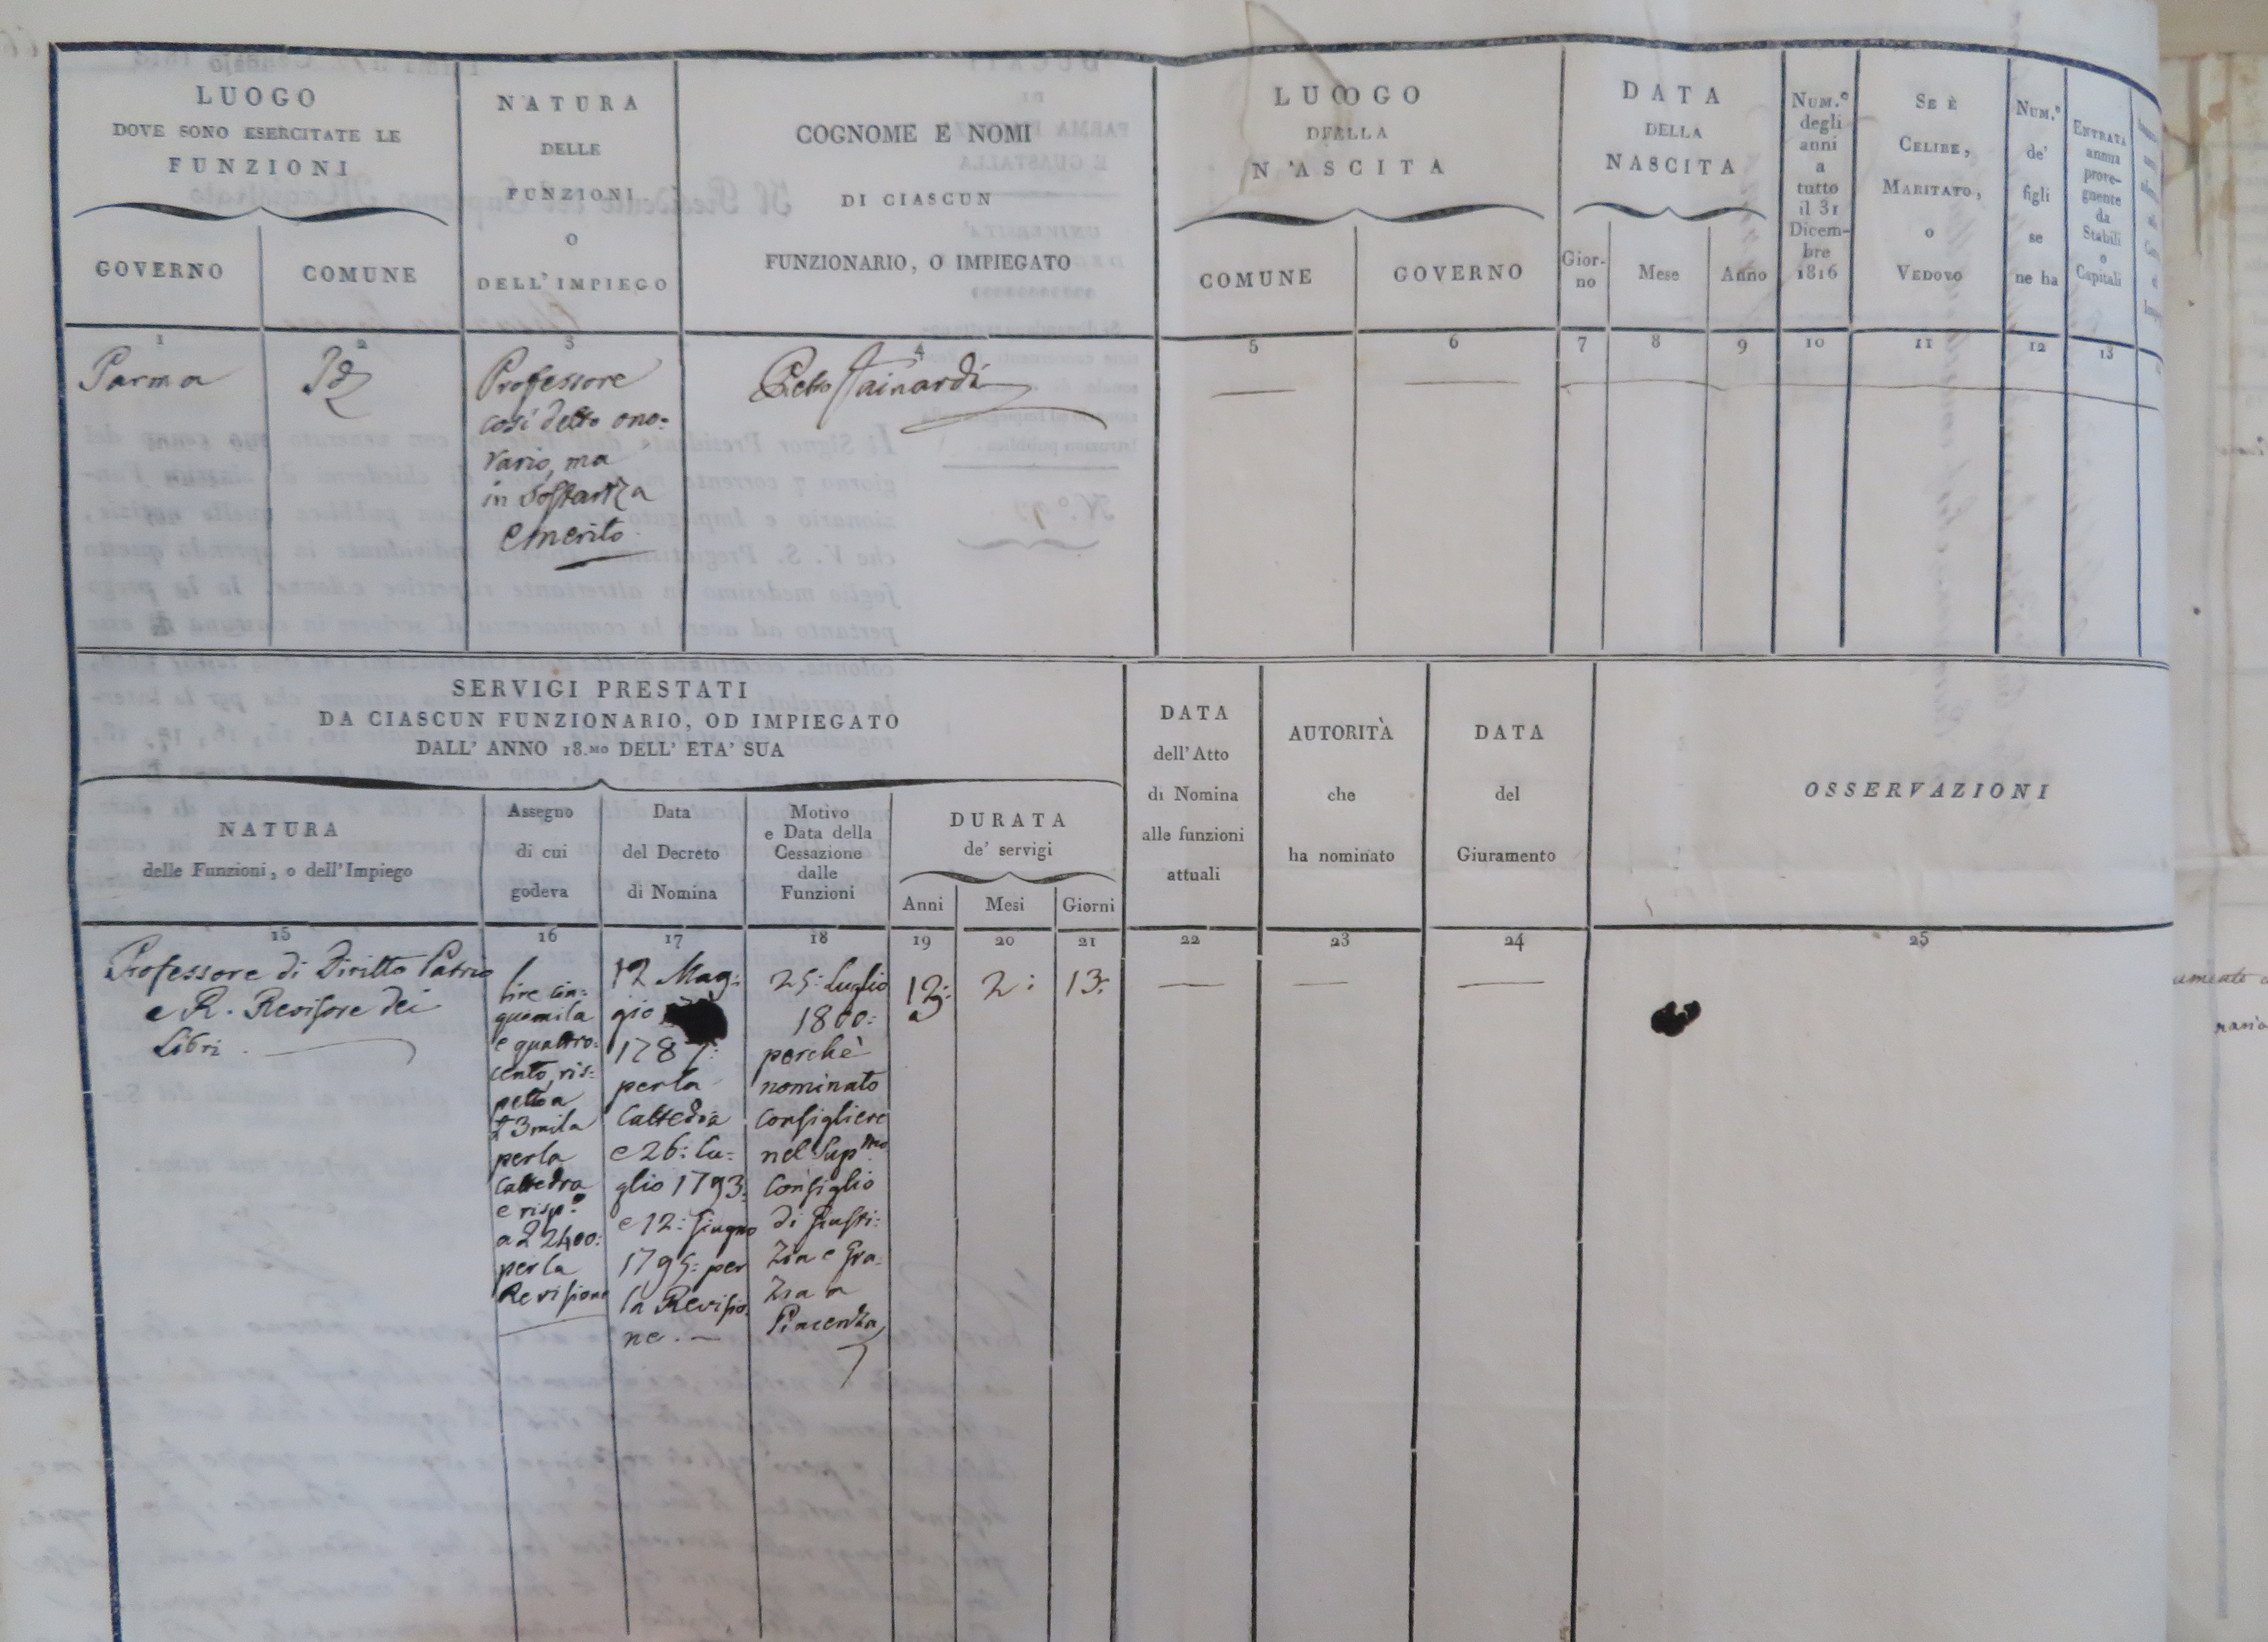 LUOGO
DOVE SONO ESERCITATE LE
FUNZIONI
GOVERNO
COMUNE
NATURA
DELLE
FUNZIONI
O
DELL' IMPIEGO
COGNOME E NOMI
DI CIASCUN
FUNZIONARIO, O IMPIEGATO
LUOGO
DELLA
NASCITA
COMUNE
GOVERNO
DATA
DELLA
NASCITA
Gior-
no
Mese
Anno
NUM.º
degli
anni
a
tutto
il 31
Dicem-
bre
1816
SE È
CELIBE,
MARITATO,
O
VEDOVO
NUM.º
de'
figli
se
ne ha
ENTRATA
annua
prove-
gnente
da
Stabili
o
Capitali
1
2
3
4
5
6
7
8
9
10
11
12
13
Parma
Id
Professore
così detto ono-
rario, ma
in Sostanza
emerito
Pietro Mainardi
SERVIGI PRESTATI
DA CIASCUN FUNZIONARIO, OD IMPIEGATO
DALL' ANNO 18.MO DELL' ETA' SUA
NATURA
delle Funzioni, o dell' Impiego
Assegno
di cui
godeva
Data
del Decreto
di Nomina
Motivo
e Data della
Cessazione
dalle
Funzioni
DURATA
de' servigi
Anni
Mesi
Giorni
DATA
dell' Atto
di Nomina
alle funzioni
attuali
AUTORITÀ
che
ha nominato
DATA
del
Giuramento
OSSERVAZIONI
15
16
17
18
19
20
21
22
23
24
25
Professore di Diritto Patrio
e R. Revisore dei
Libri
lire cin-
quemila
e quattro-
cento, ris-
petto a
£ 3mila
per la
Cattedra
e risp.º
a £ 2400:
per la
Revisione
12 Mag:
gio
1787:
per la
Cattedra
e 26: Lu-
glio 1793:
e 12: Giugno
1795: per
la Revisio-
ne.
25: Luglio
1800:
perchè
nominato
Consigliere
nel Sup.mo
Consiglio
di Giusti-
zia e Gra-
zia a
Piacenza
13:
2:
13: